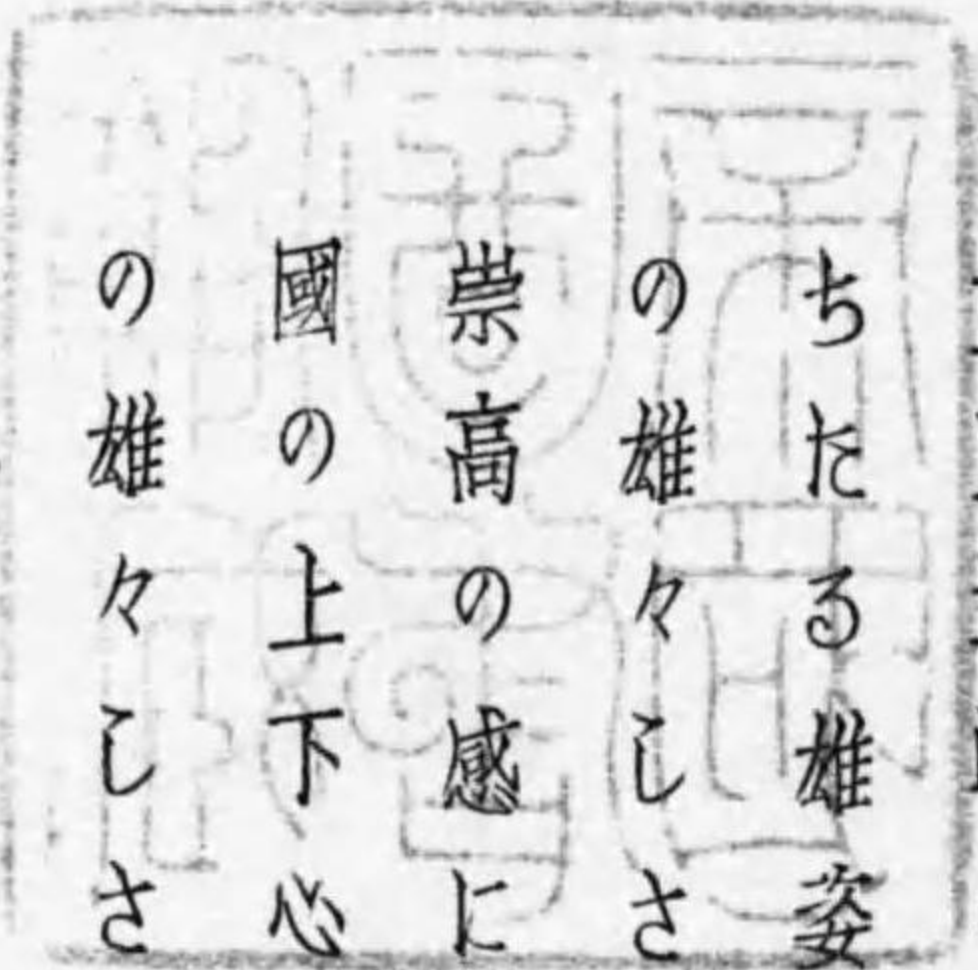 ちたる雄姿
の雄々しさ
崇高の感に
國の上下心
の雄々しさ